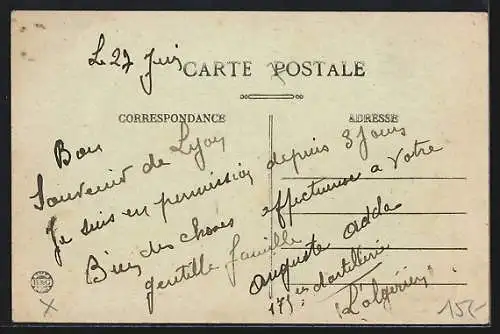 Le 27 Juin
CARTE POSTALE
CORRESPONDANCE
ADRESSE
Bon
Souvenir de Lyon
Je suis en permission depuis 3 Jours
Bien des choses affectueuses a Votre
gentille famille
Auguste Adda
175 em d'artillerie
"L'algerien"
15-